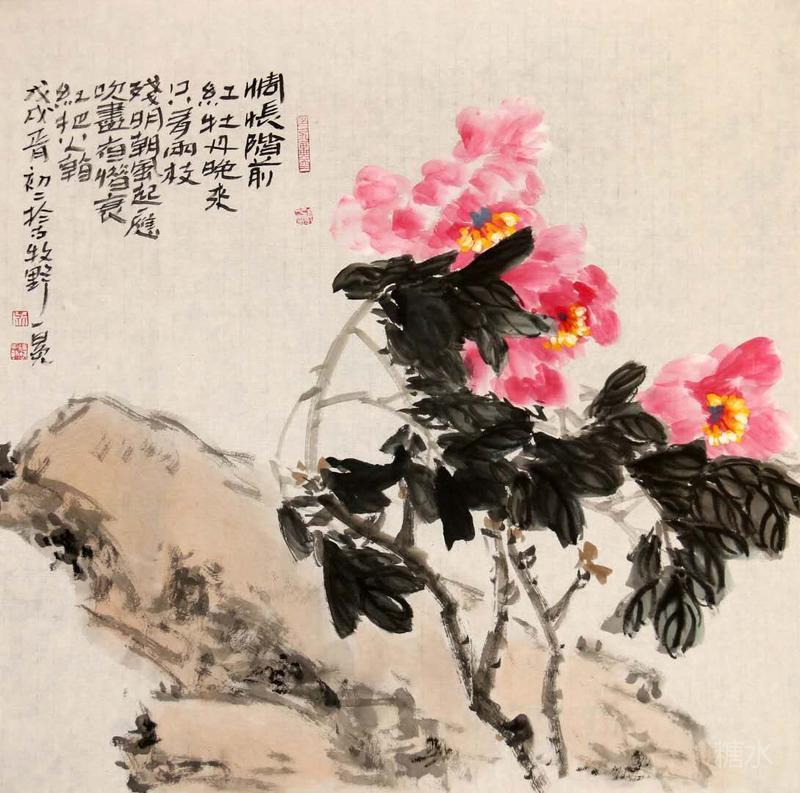 惆悵階前
紅牡丹晚來
只有兩枝
殘明朝風起應
吹盡夜惜衰
紅把火看
戊戌初二於牧野
糖水